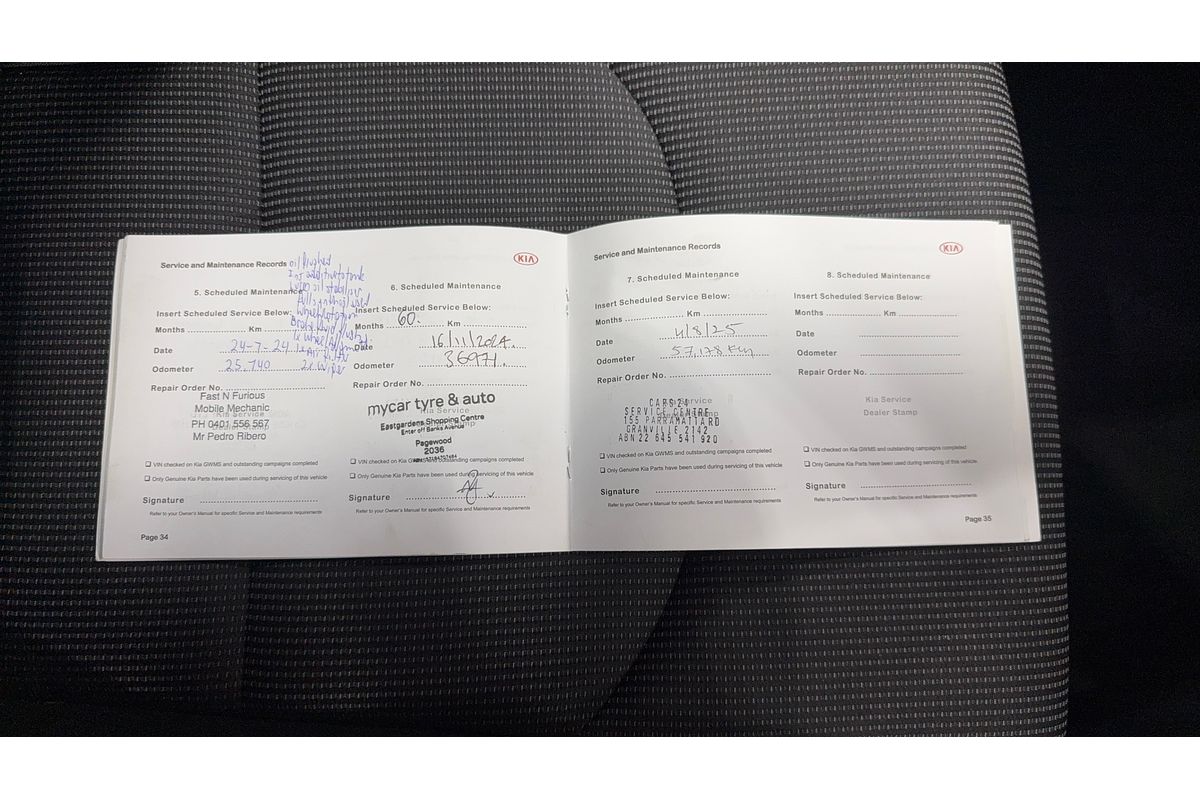 Service and Maintenance Records
KIA
5. Scheduled Maintenance
oil flushed
Insert Scheduled Service Below:
Months Km
Date 24-7-24
Odometer 25.740
Repair Order No.
Fast N Furious
Mobile Mechanic
Kia Service
PH 0401 556 567
Mr Pedro Ribero
VIN checked on Kia GWMS and outstanding campaigns completed
Only Genuine Kia Parts have been used during servicing of this vehicle
Signature
Refer to your Owner's Manual for specific Service and Maintenance requirements
Page 34
6. Scheduled Maintenance
Insert Scheduled Service Below:
Months 60. Km
Date 16/11/2024.
Odometer 36971.
Repair Order No.
mycar tyre & auto
Kia Service
Eastgardens Shopping Centre
Enter off Banks Avenue
Pagewood
2036
VIN checked on Kia GWMS and outstanding campaigns completed
Only Genuine Kia Parts have been used during servicing of this vehicle
Signature
Refer to your Owner's Manual for specific Service and Maintenance requirements
Service and Maintenance Records
KIA
7. Scheduled Maintenance
Insert Scheduled Service Below:
Months Km
Date 4/8/25
Odometer 57,178 Km
Repair Order No.
CARS24
SERVICE CENTRE
155 PARRAMATTA RD
GRANVILLE 2142
ABN 22 645 541 920
VIN checked on Kia GWMS and outstanding campaigns completed
Only Genuine Kia Parts have been used during servicing of this vehicle
Signature
Refer to your Owner's Manual for specific Service and Maintenance requirements
8. Scheduled Maintenance
Insert Scheduled Service Below:
Months Km
Date
Odometer
Repair Order No.
Kia Service
Dealer Stamp
VIN checked on Kia GWMS and outstanding campaigns completed
Only Genuine Kia Parts have been used during servicing of this vehicle
Signature
Refer to your Owner's Manual for specific Service and Maintenance requirements
Page 35